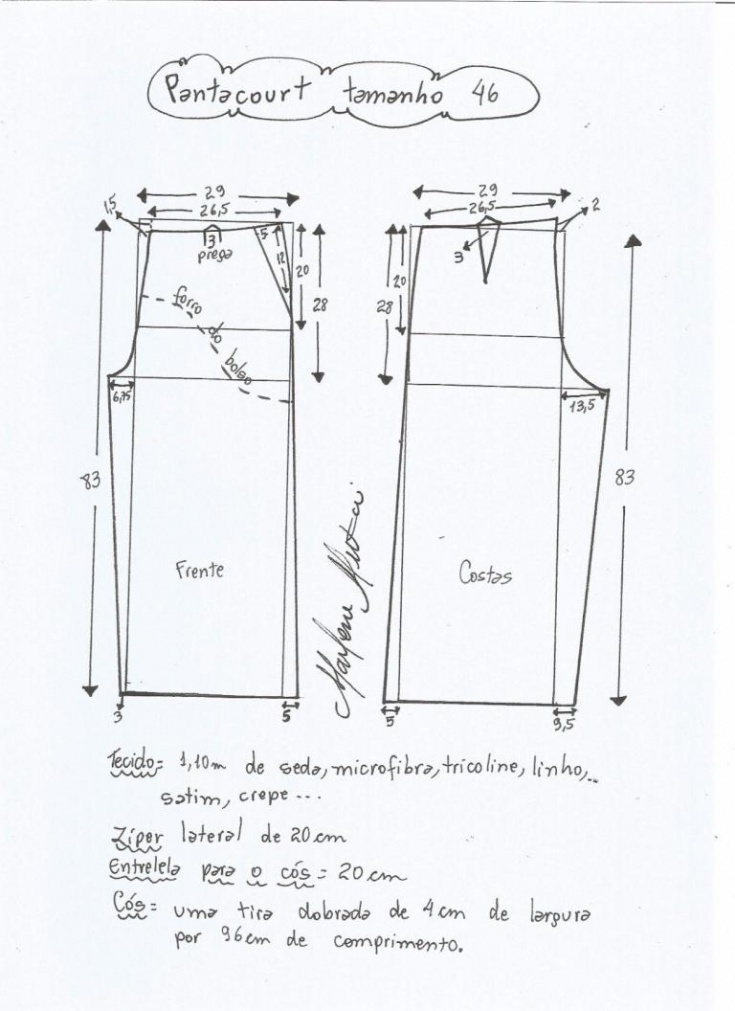 Pantacourt tamanho 46
29
26,5
1,5
3
prega
5
12
20
28
forro do bolso
6,75
83
Frente
3
5
29
26,5
2
3
20
28
13,5
83
Costas
5
9,5
Marlene Mukai
Tecido= 1,10m de seda, microfibra, tricoline, linho,..
satim, crepe ...
Zíper lateral de 20cm
Entrelela para o cós = 20cm
Cós= uma tira dobrada de 4cm de largura
por 96cm de comprimento.